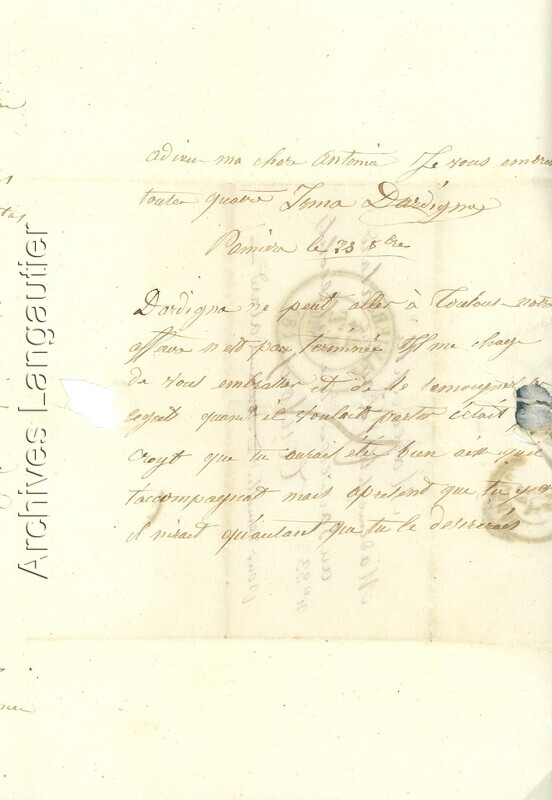 adieu ma chere Antonia Je vous embras
toutes quatre Irma Dardigna
Pamiers le 23 8bre
Dardigna ne peut aller à Toulous notre
affaire n est pas terminée Il me charge
de vous embrasser et de te temoigner le
regret quan il voulait partir c'était
croyt que tu aurais été bien aise quil
taccompagneat mais apresend que tu
il nirait qu'autant que tu le desirerais
Archives Langautier